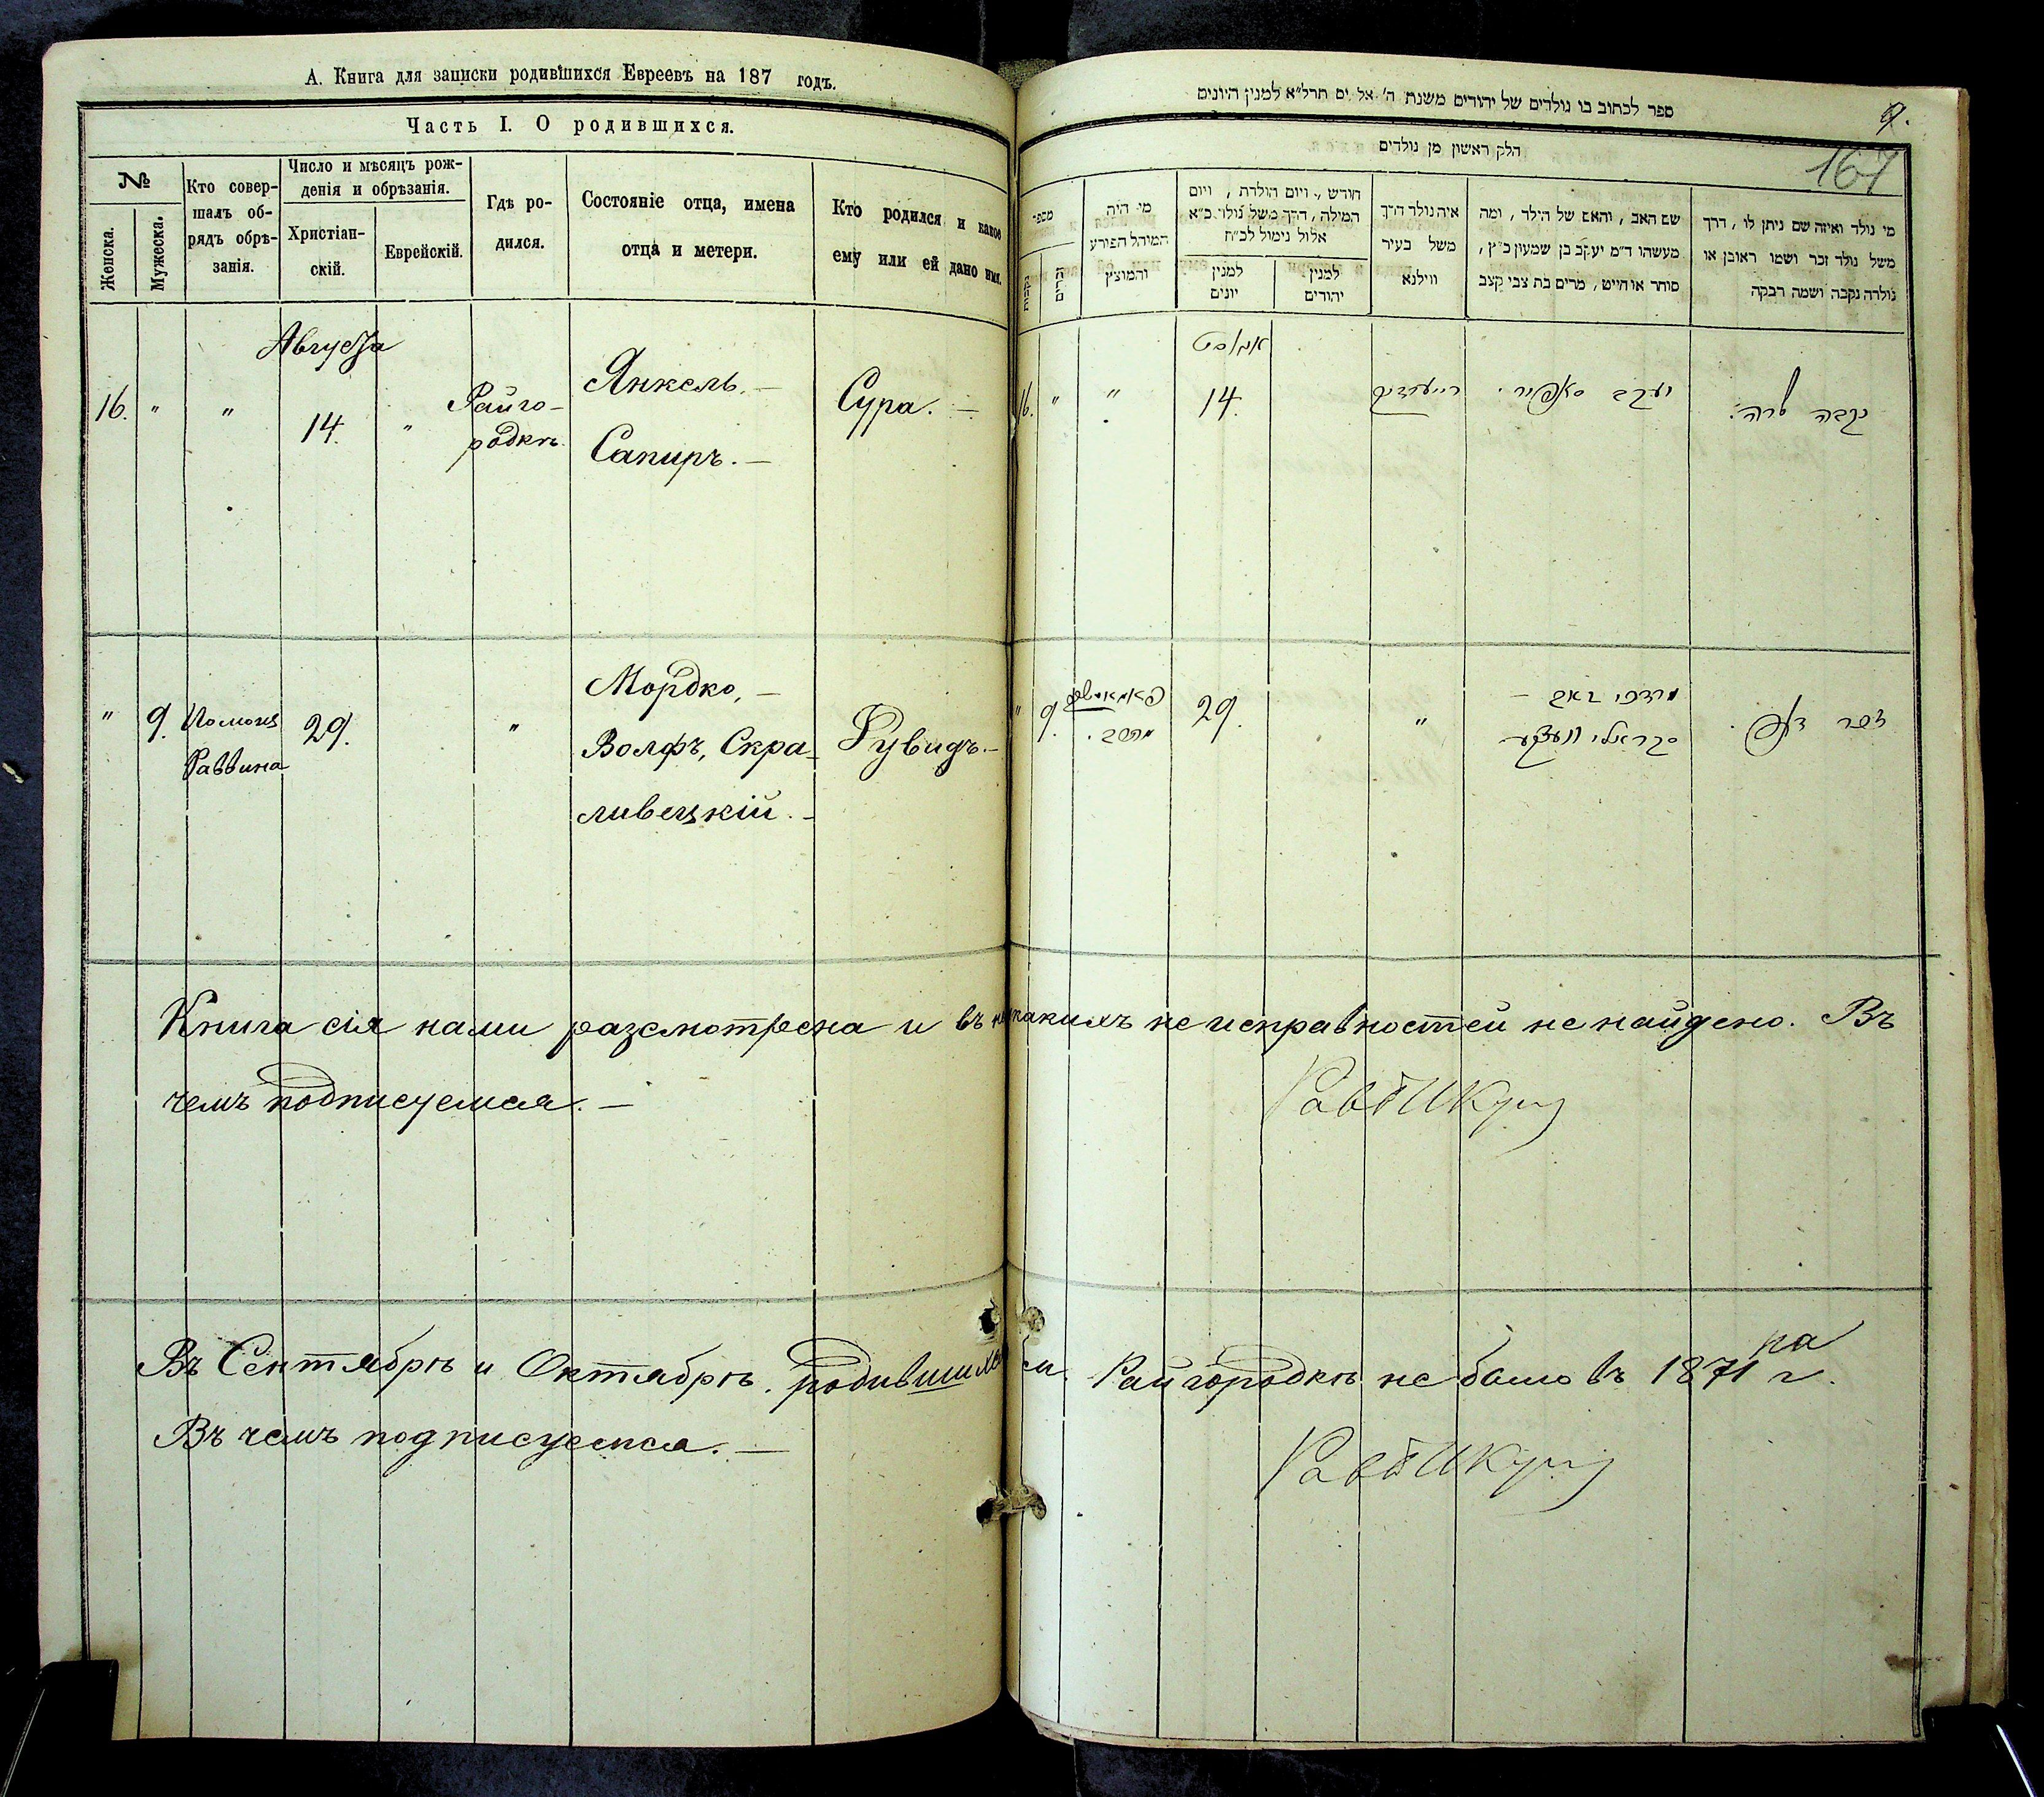 А. Книга для записки родившихся Евреевъ на 187 годъ.
Часть I. О родившихся.
№
Женска.
Мужеска.
Кто совер-
шалъ об-
рядъ обрѣ-
занія.
Число и мѣсяцъ рож-
денія и обрѣзанія.
Христіан-
скій.
Еврейскій.
Гдѣ ро-
дился.
Состояніе отца, имена
отца и метери.
Кто родился и какое
ему или ей дано имя.
Августа
16. " " 14. "
Райго-
родкѣ.
Янкель. —
Сапиръ. —
Сура. —
" 9.
Помощ
Раввина
29. "
Мордко, —
Волфъ, Скра-
ливецкій. —
ספר לכתוב בו נולדים של יהודים משנת ה' אל ים תרל"א למנין היונים
9.
167
חלק ראשון מן נולדים
מספר
נקבות
זכרים
מי היה
המוהל הפורע
והמוצץ
חודש , ויום הולדת , ויום
המילה , דרך משל נולד כ"א
אלול נימול לכ"ח
למנין
יונים
למנין
יהודים
איה נולד דרך
משל בעיר
ווילנא
שם האב , והאם של הילד , ומה
מעשהו ד"מ יעקב בן שמעון כ"ץ ,
סוחר או חייט , מרים בת צבי קצב
מי נולד ואיזה שם ניתן לו , דרך
משל נולד זכר ושמו ראובן או
נולדה נקבה ושמה רבקה
אוגוסט
16. " " 14.
יעקב סאפיר .
נקבה שרה.
" 9.
29. "
מרדכי
זכר
Книга сія нами разсмотрена и въ никакихъ не исправностей не найдено. Въ
чемъ подписуемся. —
Въ Сентябрѣ и Октябрѣ. родившихся Райгородкѣ не было въ 1871 г.
Въ чемъ подписуемся. —